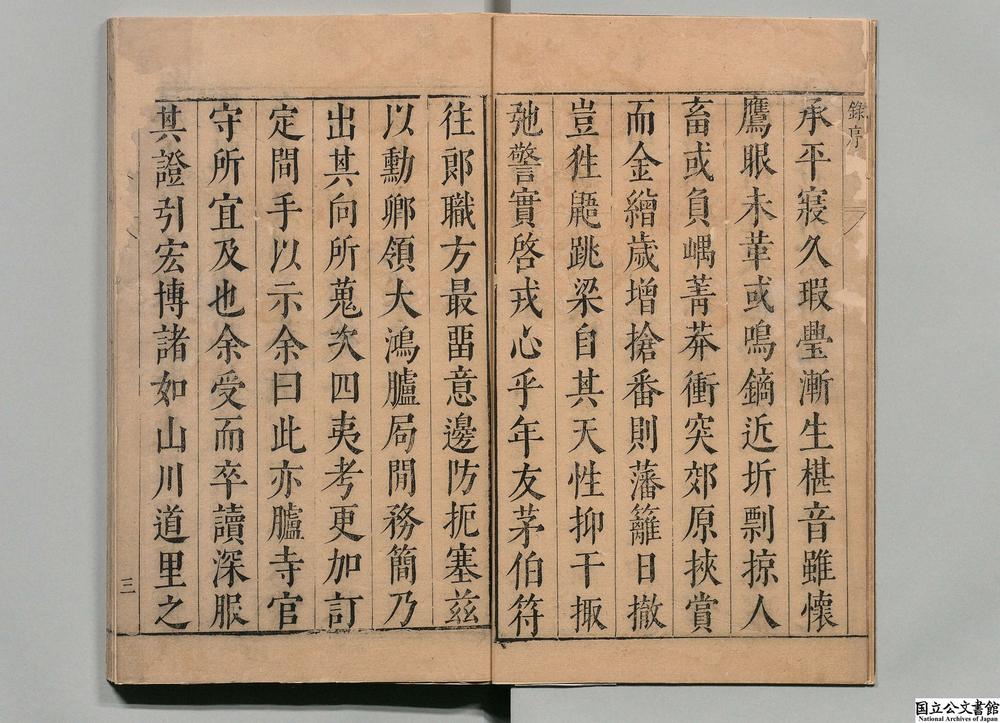 錄序
承平寢久瑕亹漸生椹音雖懷
鷹眼未革或鳴鏑近圻剽掠人
畜或負嵎菁莽衝突郊原挾賞
而金繒歲增搶番則藩籬日撤
豈狌鼯跳梁自其天性抑干掫
弛警實啓戎心乎年友茅伯符
往郎職方最畱意邊防扼塞茲
以勳卿領大鴻臚局閒務簡乃
出其向所蒐次四夷考更加訂
定間手以示余曰此亦臚寺官
守所宜及也余受而卒讀深服
其證引宏博諸如山川道里之
三
国立公文書館
National Archives of Japan